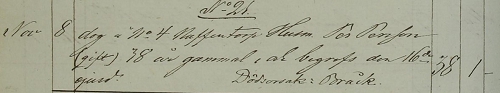 No 21.
Nov 8 dog i No 4 Husm. Pär Persson
(gift) 38 år gammal, ock begrofs den 16de 38 1-
ejusd. Dödsorsak: Bråck.